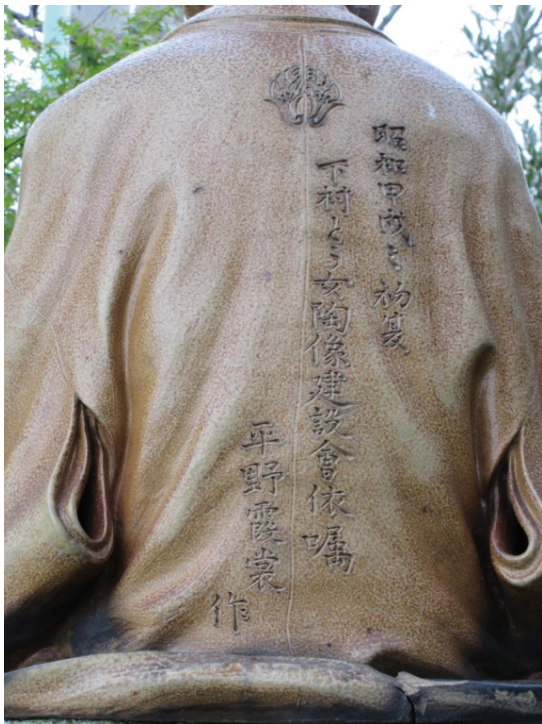 昭和甲戌之初夏
下村とう女陶像建設會依嘱
平野霞裳
作